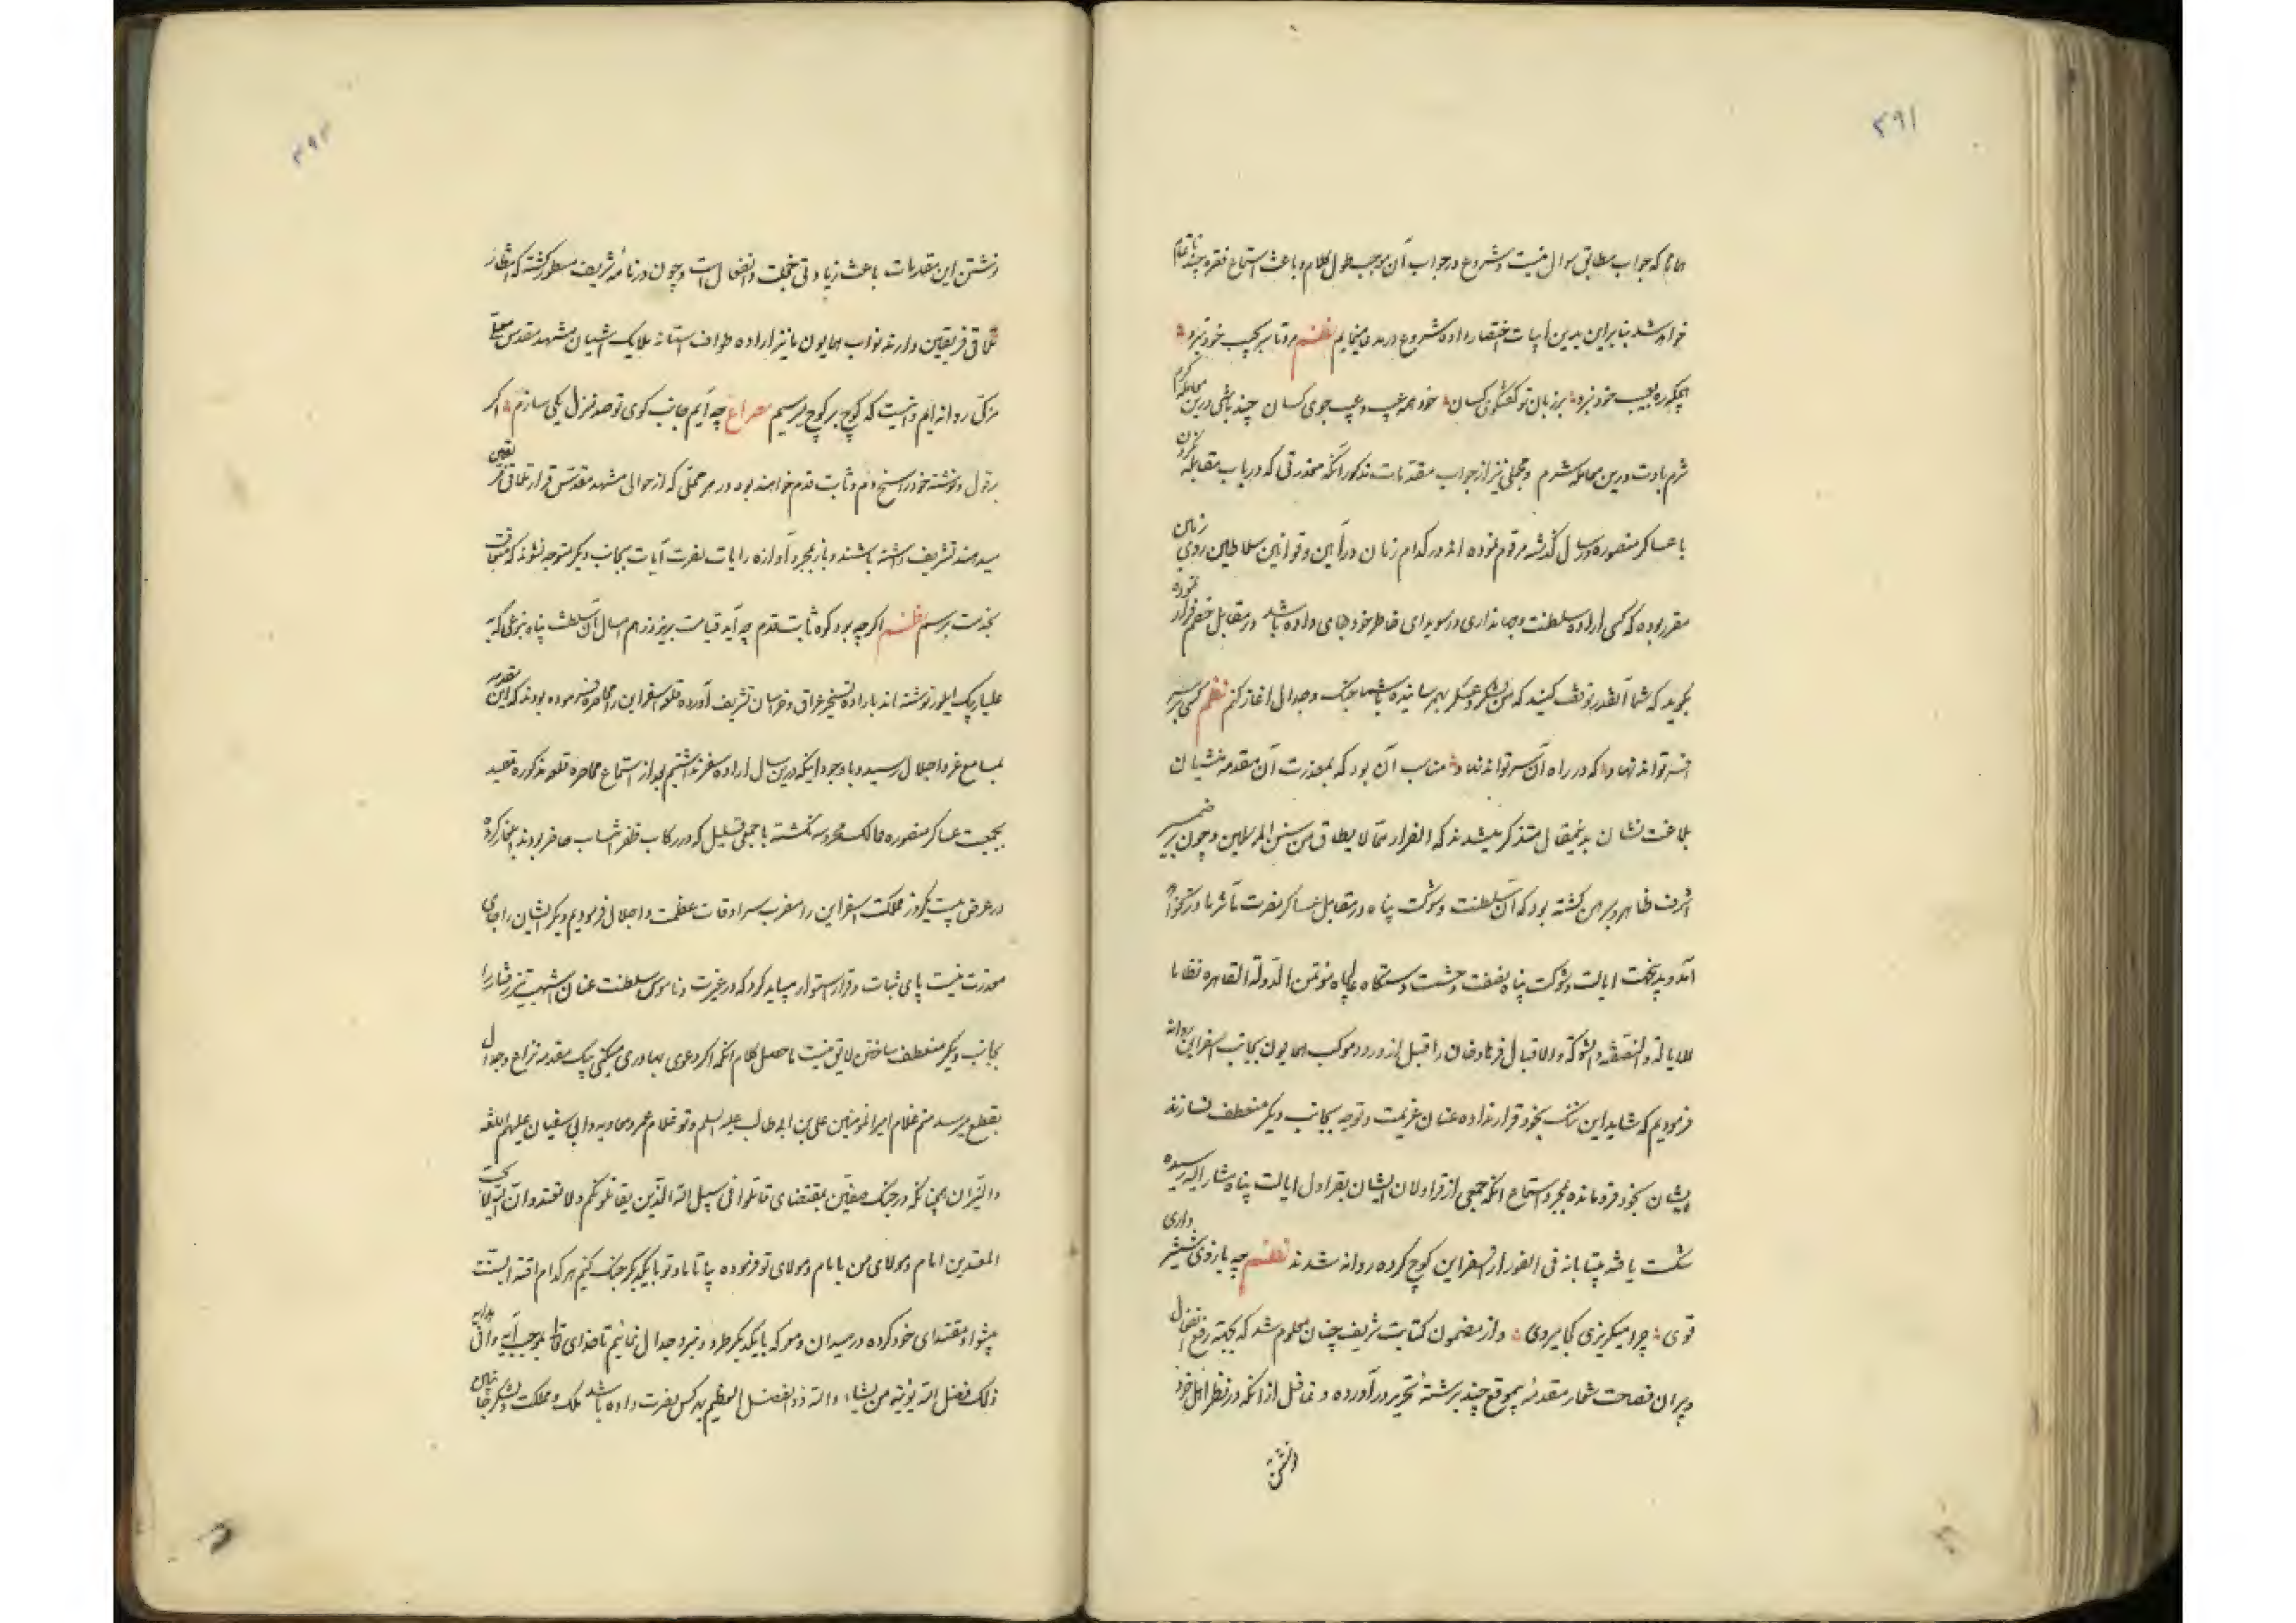 ۳۹۱
همانا که جواب مطابق سوال نیست و شروع در جواب آن موجب طول کلام و باعث استماع فقره چند ناتمام
خواهد شد بنابراین بدین ابیات اختصار داده شروع در مدعا مینمایم نظم مرو تا سر بجیب خود نبرد
هیچکه ره بعیب خود نبرد بر زبان تو گفتگوی کسان خود همه عیب و عیب جوی کسان چند باشی درین معامله گرم
شرم بادت درین معامله شرم و مجملی نیز از جواب مقدمات مذکور آنکه معذرتی که در باب مقابله نکردن
با عساکر منصوره در سال گذشته مرقوم نموده اند در کدام زمان در آیین و قوانین سلاطین روی زمین
مقرر بوده که کسی اراده سلطنت و جهانداری در سویدای خاطر خود جای داده باشد در مقابل خصم فرار نموده
بگوید که شما آنقدر توقف کنید که من لشکر و عسکر بهم رسانیده با شما جنگ و جدال آغاز کنم نظم کسی بر سر
افسر تواند نهاد که در راه آن سر تواند نهاد مناسب آن بود که بمعذرت آن مقدمه منشیان
بلاغت نشان بدینمقال متذکر میشدند که الفرار مما لا یطاق من سنن المرسلین و چون بر ضمیر
اشرف ظاهر و مبرهن گشته بود که آن سلطنت و شوکت پناه در مقابل عساکر نصرت مآثر ما در نخواهد
آمد و بدینجهت ایالت و شوکت پناه نصفت و حشمت دستگاه عالیجاه مؤتمن الدولة القاهره نظاما
للایالة والنصفة والشوکة والاقبال فرهاد خان را قبل از ورود موکب همایون بجانب اسفراین روانه
فرمودیم که شاید این ننگ بخود قرار نداده عنان عزیمت و توجه بجانب دیگر منعطف نسازند
ایشان بخود فرو مانده بمجرد استماع آنکه جمعی از قراولان ایشان بقراول ایالت پناه مشار الیه رسیده
شکست یافته بیتابانه فی الفور از اسفراین کوچ کرده روانه شدند نظم چه بازوی شمشیر داری
قوی چرا میگریزی کجا میروی و از مضمون کتابت شریف چنان معلوم شد که بجهة رفع انفعال
دبیران فصاحت شعار مقدمه بیموقع چند برشتهٔ تحریر درآورده و غافل از آنکه در نظر اهل خرد
دانشتن
۳۹۲
نوشتن این مقدمات باعث زیادتی خجلت و انفعال است و چون در نامهٔ شریف مسطور گشته که انتظار
تلاقی فریقین دارند نواب همایون ما نیز اراده طواف آستانه ملایک آشیان مشهد مقدس معلی
مزکی روانه ایم و نیت که کوچ بر کوچ برسیم مصراع چه آیم جانب کوی تو صد منزل یکی سازم اگر
بقول و نوشته خود راسخ دم و ثابت قدم خواهند بود در هر محلی که از حوالی مشهد مقدس قرار تلاقی فریقین
میدهند تشریف داشته باشند و باز بمجرد آوازه رایات نصرت آیات بجانب دیگر متوجه نشوند که متعاقب
بخدمت برسم نظم اگرچه بود کوه ثابت قدم چه آید قیامت بریزد ز هم امسال آن سلطنت پناه بنوعی که به
علیار بیک ایلور نوشته اند باراده تسخیر عراق و خراسان تشریف آورده قلعه اسفراین را محاصره فرموده بودند که این مقدمه
بمسامع عز و اجلال رسید و با وجود اینکه درین سال اراده سفر نداشتیم بعد از استماع محاصره قلعه مذکوره مقید
بجمعیت عساکر منصوره ممالک محروسه نگشته با جمعی قلیل که در رکاب ظفر انتساب حاضر بودند ایلغار کرده
در عرض بیست یکروز مملکت اسفراین را مضرب سرادقات عظمت و اجلال فرمودیم دیگر ایشان را جای
معذرت نیست پای ثبات و قرار استوار میباید کرد که در غیرت و ناموس سلطنت عنان اشهب تیز رفتار را
بجانب دیگر منعطف ساختن لایق نیست ماحصل کلام آنکه اگر دعوی بهادری میکنی بیک مقدمه نزاع و جدال
بقطع میرسد منم غلام امیرالمومنین علی بن ابی طالب علیه السلم و تو غلام عمر و معاویه و ابی سفیان علیهم اللعنه
والنیران همچنانکه در جنگ صفین بمقتضای قاتلوا فی سبیل الله الذین یقاتلونکم و لا تعتدوا ان الله لا یحب
المعتدین امام و مولای من با امام و مولای تو فرموده بیا تا ما و تو با یکدیگر جنگ کنیم هرکدام اقتدا بسنت
پیشوا و مقتدای خود کرده در میدان و معرکه با یکدیگر طرد و نبرد و جدال نمائیم تا خدای تعالی بموجب آیه وافی هدایه
ذلک فضل الله یؤتیه من یشاء والله ذوالفضل العظیم بهر کس نصرت داده باشد ملک و مملکت و لشکر